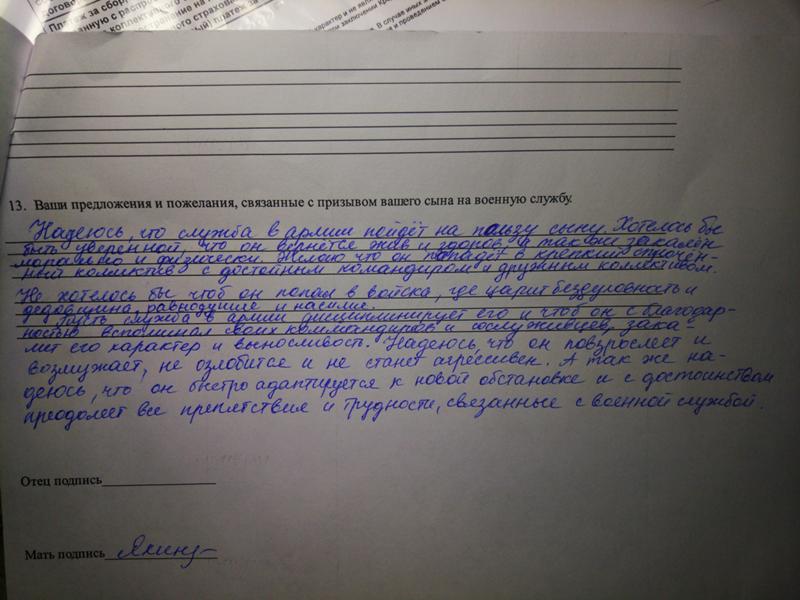 13. Ваши предложения и пожелания, связанные с призывом вашего сына на военную службу.
Надеюсь, что служба в армии пойдёт на пользу сыну. Хотелось бы
быть уверенной, что он вернётся жив и здоров, а так же закалён
морально и физически. Желаю что он попадёт в крепкий сплочен-
ный коллектив с достойным командиром и дружным коллективом.
Не хотелось бы чтоб он попал в войска, где царит бездуховность и
дедовщина, равнодушие и насилие.
Пусть служба в армии дисциплинирует его и чтоб он с благодар-
ностью вспоминал своих коммандиров и сослуживцев, зака-
лит его характер и выносливость. Надеюсь, что он повзрослеет и
возмужает, не озлобится и не станет агрессивен. А так же на-
деюсь, что он быстро адаптируется к новой обстановке и с достоинством
преодолеет все препятствия и трудности, связанные с военной службой.
Отец подпись
Мать подпись